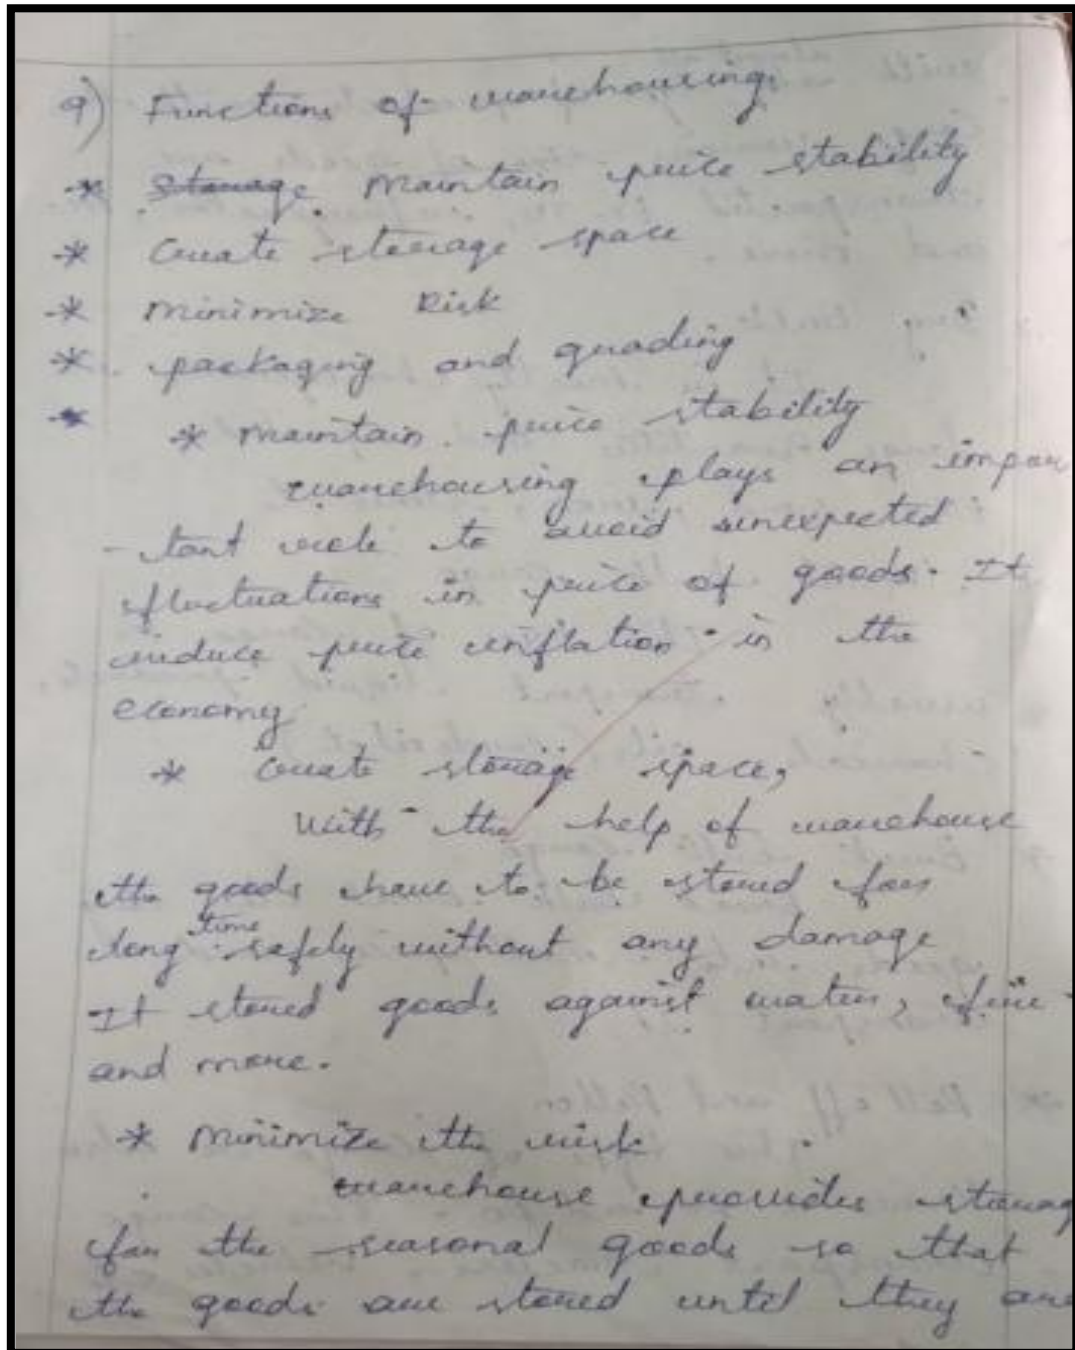 9) Functions of warehousing.
* Storage. Maintain price stability
* Create storage space
* Minimize Risk
* packaging and grading
* * Maintain price stability
warehousing plays an impor
- tant role to avoid unexpected
fluctuations in price of goods. It
reduce price inflation in the
economy
* Create storage space,
With the help of warehouse
the goods have to be stored for
long time safely without any damage
It stored goods against water, fire
and more.
* Minimize the risk
warehouse provides storag
for the seasonal goods so that
the goods are stored until they are